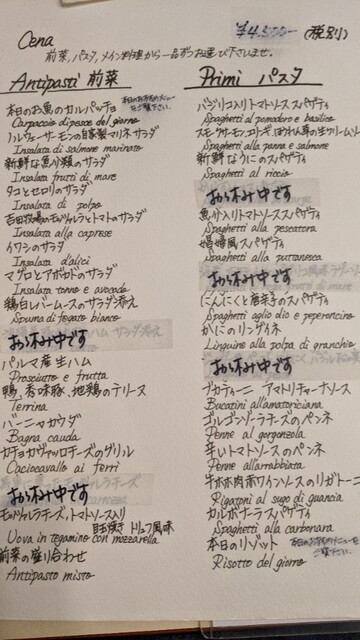 Cena
¥4,500- (税別)
前菜、パスタ、メイン料理から一品ずつお選び下さいませ。
Antipasti 前菜
本日のお魚のカルパッチョ
Carpaccio di pesce del giorno
ノルウェーサーモンの自家製マリネサラダ
Insalata di salmone marinato
新鮮な魚介類のサラダ
Insalata frutti di mare
タコとセロリのサラダ
Insalata di polpo
吉田牧場のモッツァレラとトマトのサラダ
Insalata alla caprese
イワシのサラダ
Insalata d'alici
マグロとアボガドのサラダ
Insalata tonno e avocado
鶏白レバームースのサラダ添え
Spuma di fegato bianco
お休み中です
パルマ産生ハム
Prosciutto e frutta
鴨、香味豚、地鶏のテリーヌ
Terrina
バーニャカウダ
Bagna cauda
カチョカヴァッロチーズのグリル
Caciocavallo ai ferri
お休み中です
モッツァレラチーズ、トマトソース入り
卵焼き トリュフ風味
Uova in tegamino con mozzarella
前菜の盛り合わせ
Antipasto misto
Primi パスタ
バジリコ入りトマトソース スパゲティ
Spaghetti al pomodoro e basilico
Spaghetti alla panna e salmone
新鮮なうにのスパゲティ
Spaghetti al riccio
お休み中です
魚介入りトマトソーススパゲティ
Spaghetti alla pescatora
娼婦風スパゲティ
Spaghetti alla puttanesca
お休み中です
にんにくと唐辛子のスパゲティ
Spaghetti aglio olio e peperoncino
かにのリングイネ
Linguine alla polpa di granchio
お休み中です
ブカティーニ アマトリチャーナソース
Bucatini all'amatoriciana
ゴルゴンゾーラチーズのペンネ
Penne al gorgonzola
辛いトマトソースのペンネ
Penne all'arrabbiata
牛ホホ肉赤ワインソースのリガトーニ
Rigatoni al sugo di guancia
カルボナーラスパゲティ
Spaghetti alla carbonara
本日のリゾット
Risotto del giorno